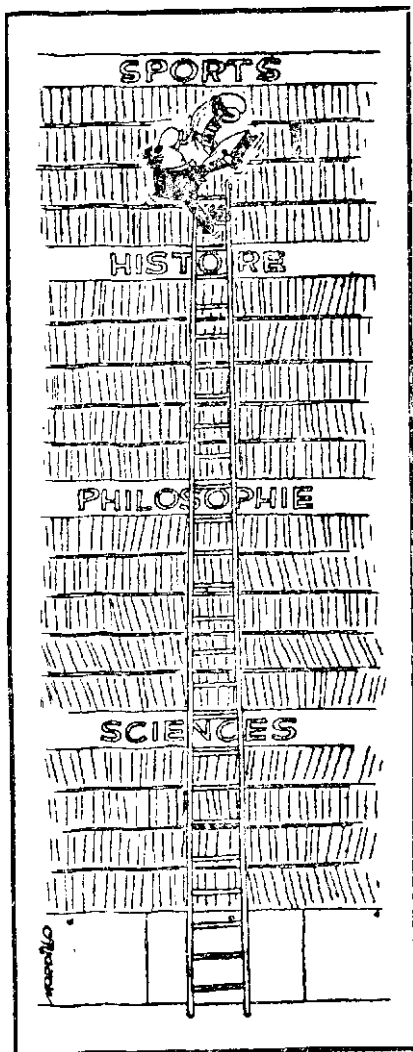 SPORTS
HISTOIRE
PHILOSOPHIE
SCIENCES